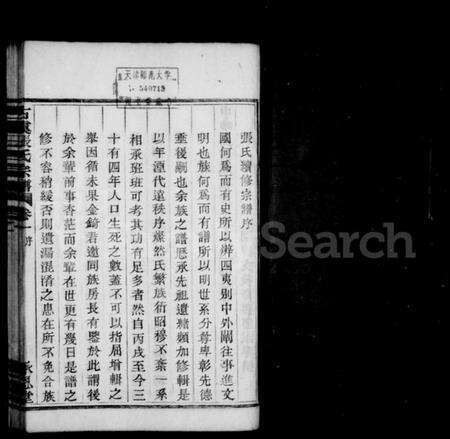 張氏續修宗譜序
國何爲而有史所以辨四夷别中外闡往事進文
明也族何爲而有譜所以明世系分尊卑彰先德
垂後嗣也余族之譜恩承先祖遺緒頻加修輯是
以年湮代遠秩序燦然氏繁族衍昭穆不紊一系
相承班班可考其功有足多者然自丙戌至今三
十有四年人口生死之數蓋不可以指屈增輯之
舉因循未果金錡君邀同族房長有鑒於此謂後
於余輩前事杳茫而余輩在世更有幾日是譜之
修不容稍緩否則遺漏混淆之患在所不免合族
張氏宗譜
承恩堂
天津師範大學
540713
Search